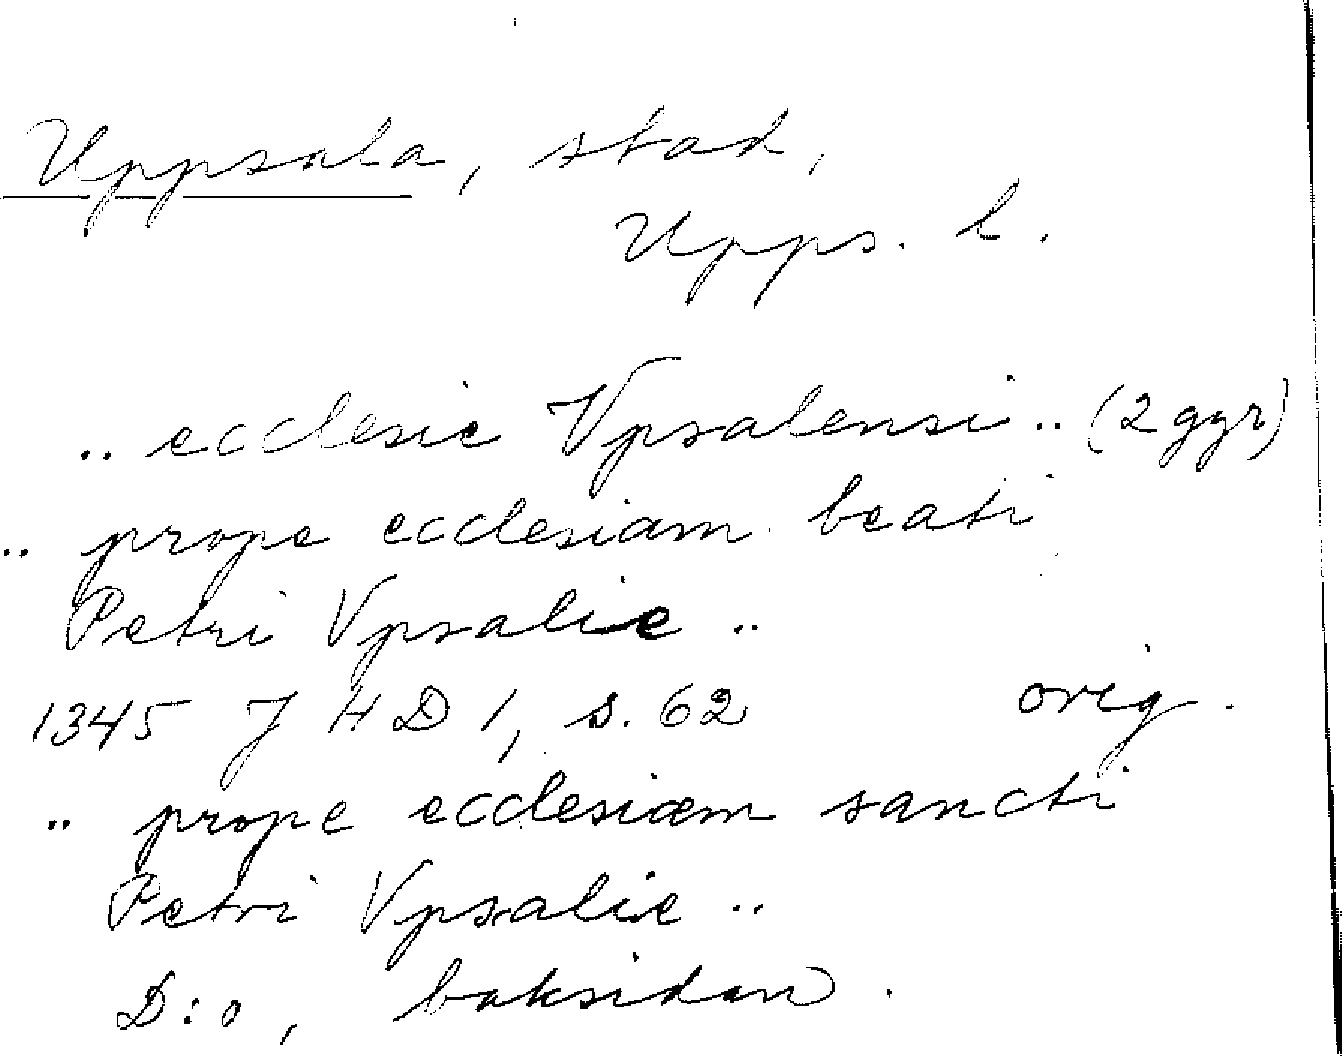 Uppsala, stad,
Upps. l.
.. ecclesie Vpsalensi .. (2 ggr)
.. prope ecclesiam beati
Petri Vpsalie ..
1345 J HD 1, s. 62 orig.
.. prope ecclesiam sancti
Petri Vpsalie ..
D:o, baksidan.